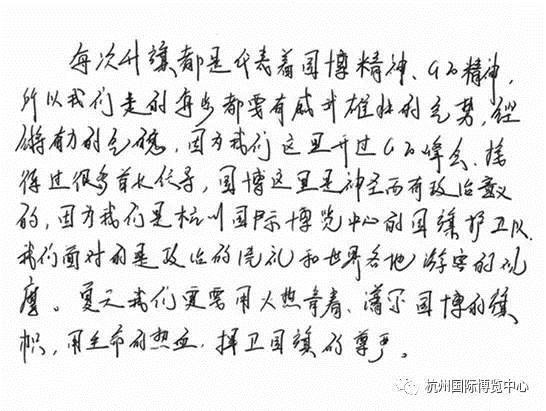 每次升旗都是代表着国博精神、G20精神,
所以我们走的每步都要有威武雄壮的气势,铿
锵有力的气魄,因为我们这里开过G20峰会、接
得过很多首长领导,国博这里是神圣而有政治意义
的,因为我们是杭州国际博览中心的国旗护卫队
我们面对的是政治的洗礼和世界各地游客的观
摩。夏天我们更要用火热青春、 国博的旗
帜,用生命的热血.捍卫国旗的尊严。
杭州国际博览中心